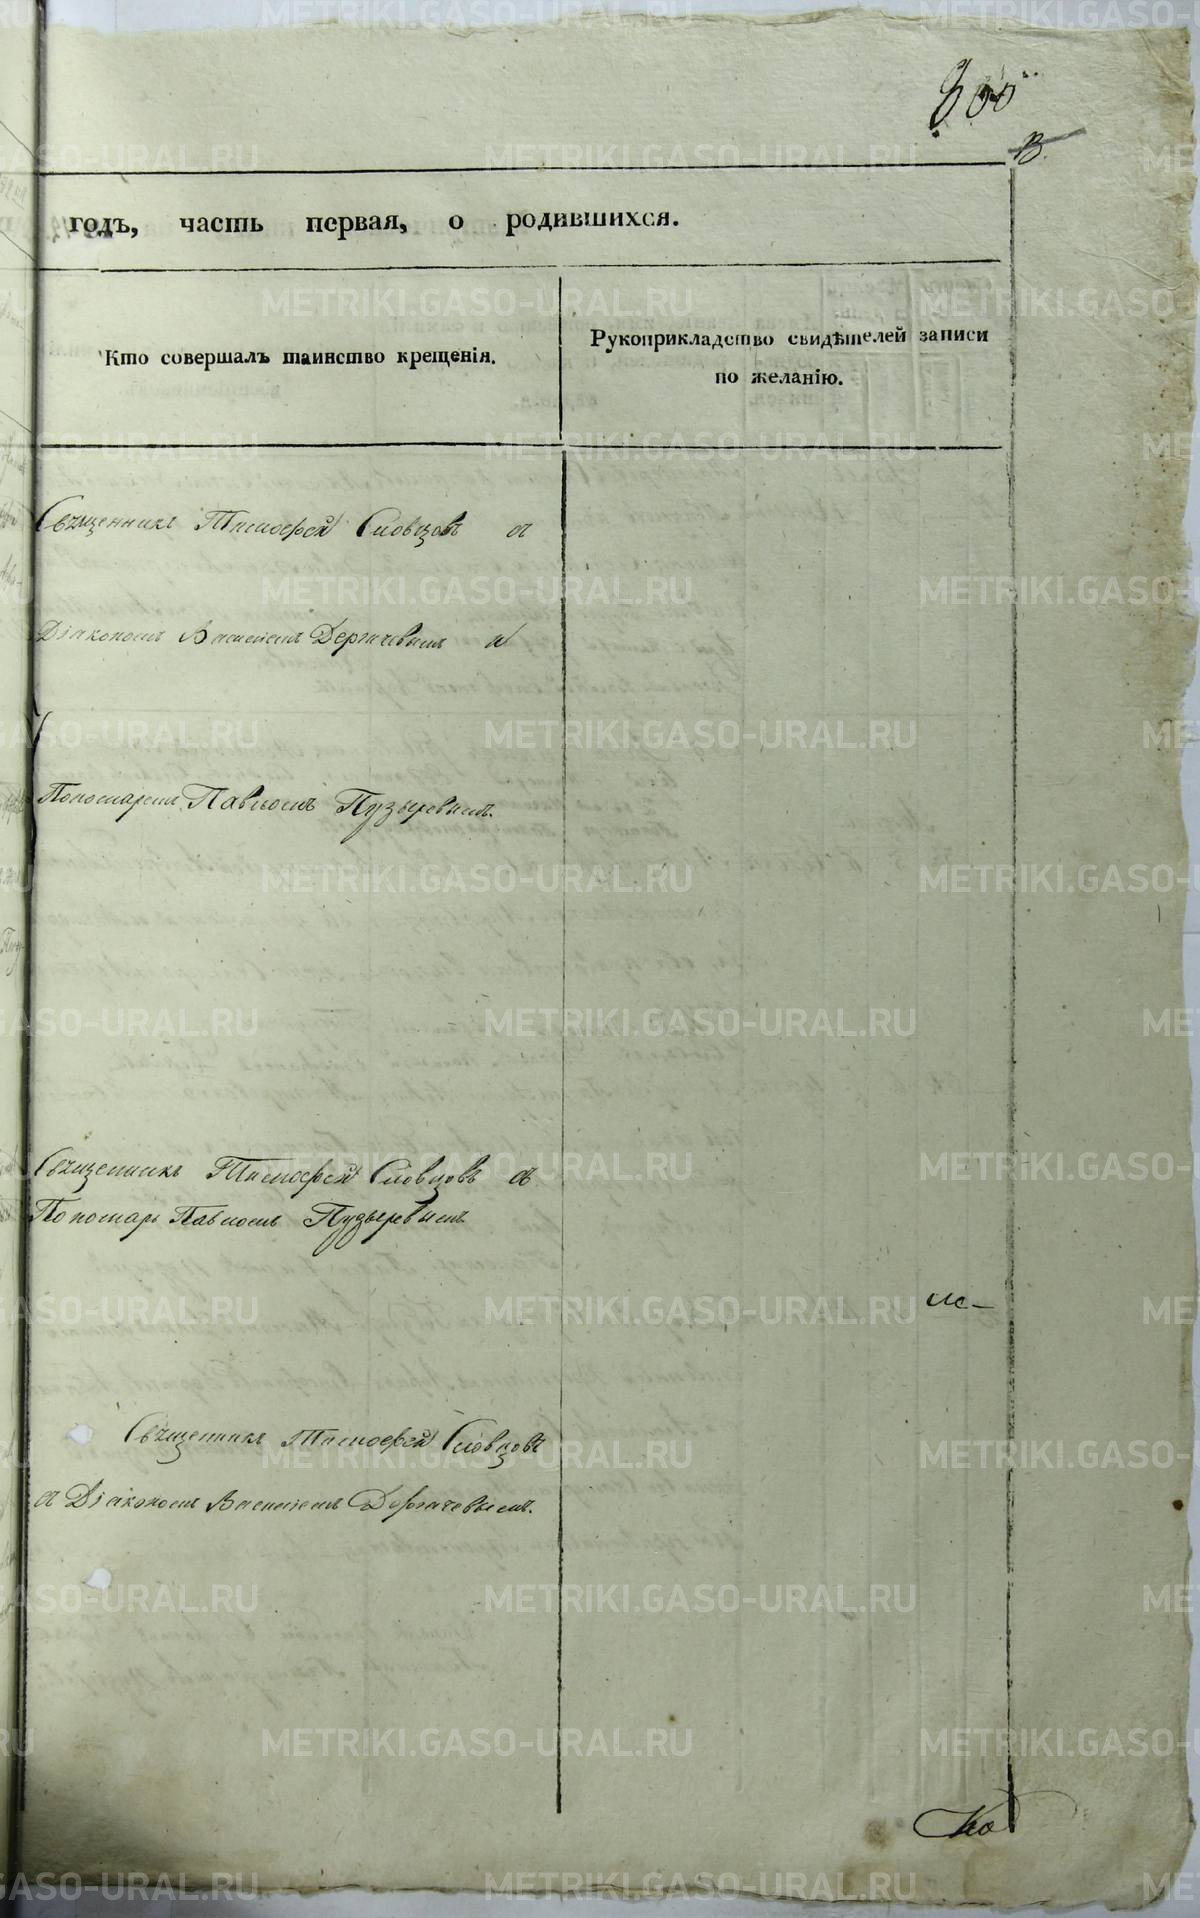 300
В.
годъ, часть первая, о родившихся.
Кто совершалъ таинство крещенія.
Рукоприкладство свидѣтелей записи
по желанію.
Священникъ Тимоѳей Словцовъ съ
Діакономъ Василіемъ Дергачевымъ и
Пономаремъ Павломъ Пузыревымъ.
Священникъ Тимоѳей Словцовъ съ
Пономарь Павломъ Пузыревымъ
ис-
Священникъ Тимоѳей Словцовъ
съ Діакономъ Василіемъ Дергачевымъ.
Ко
METRIKI.GASO-URAL.RU